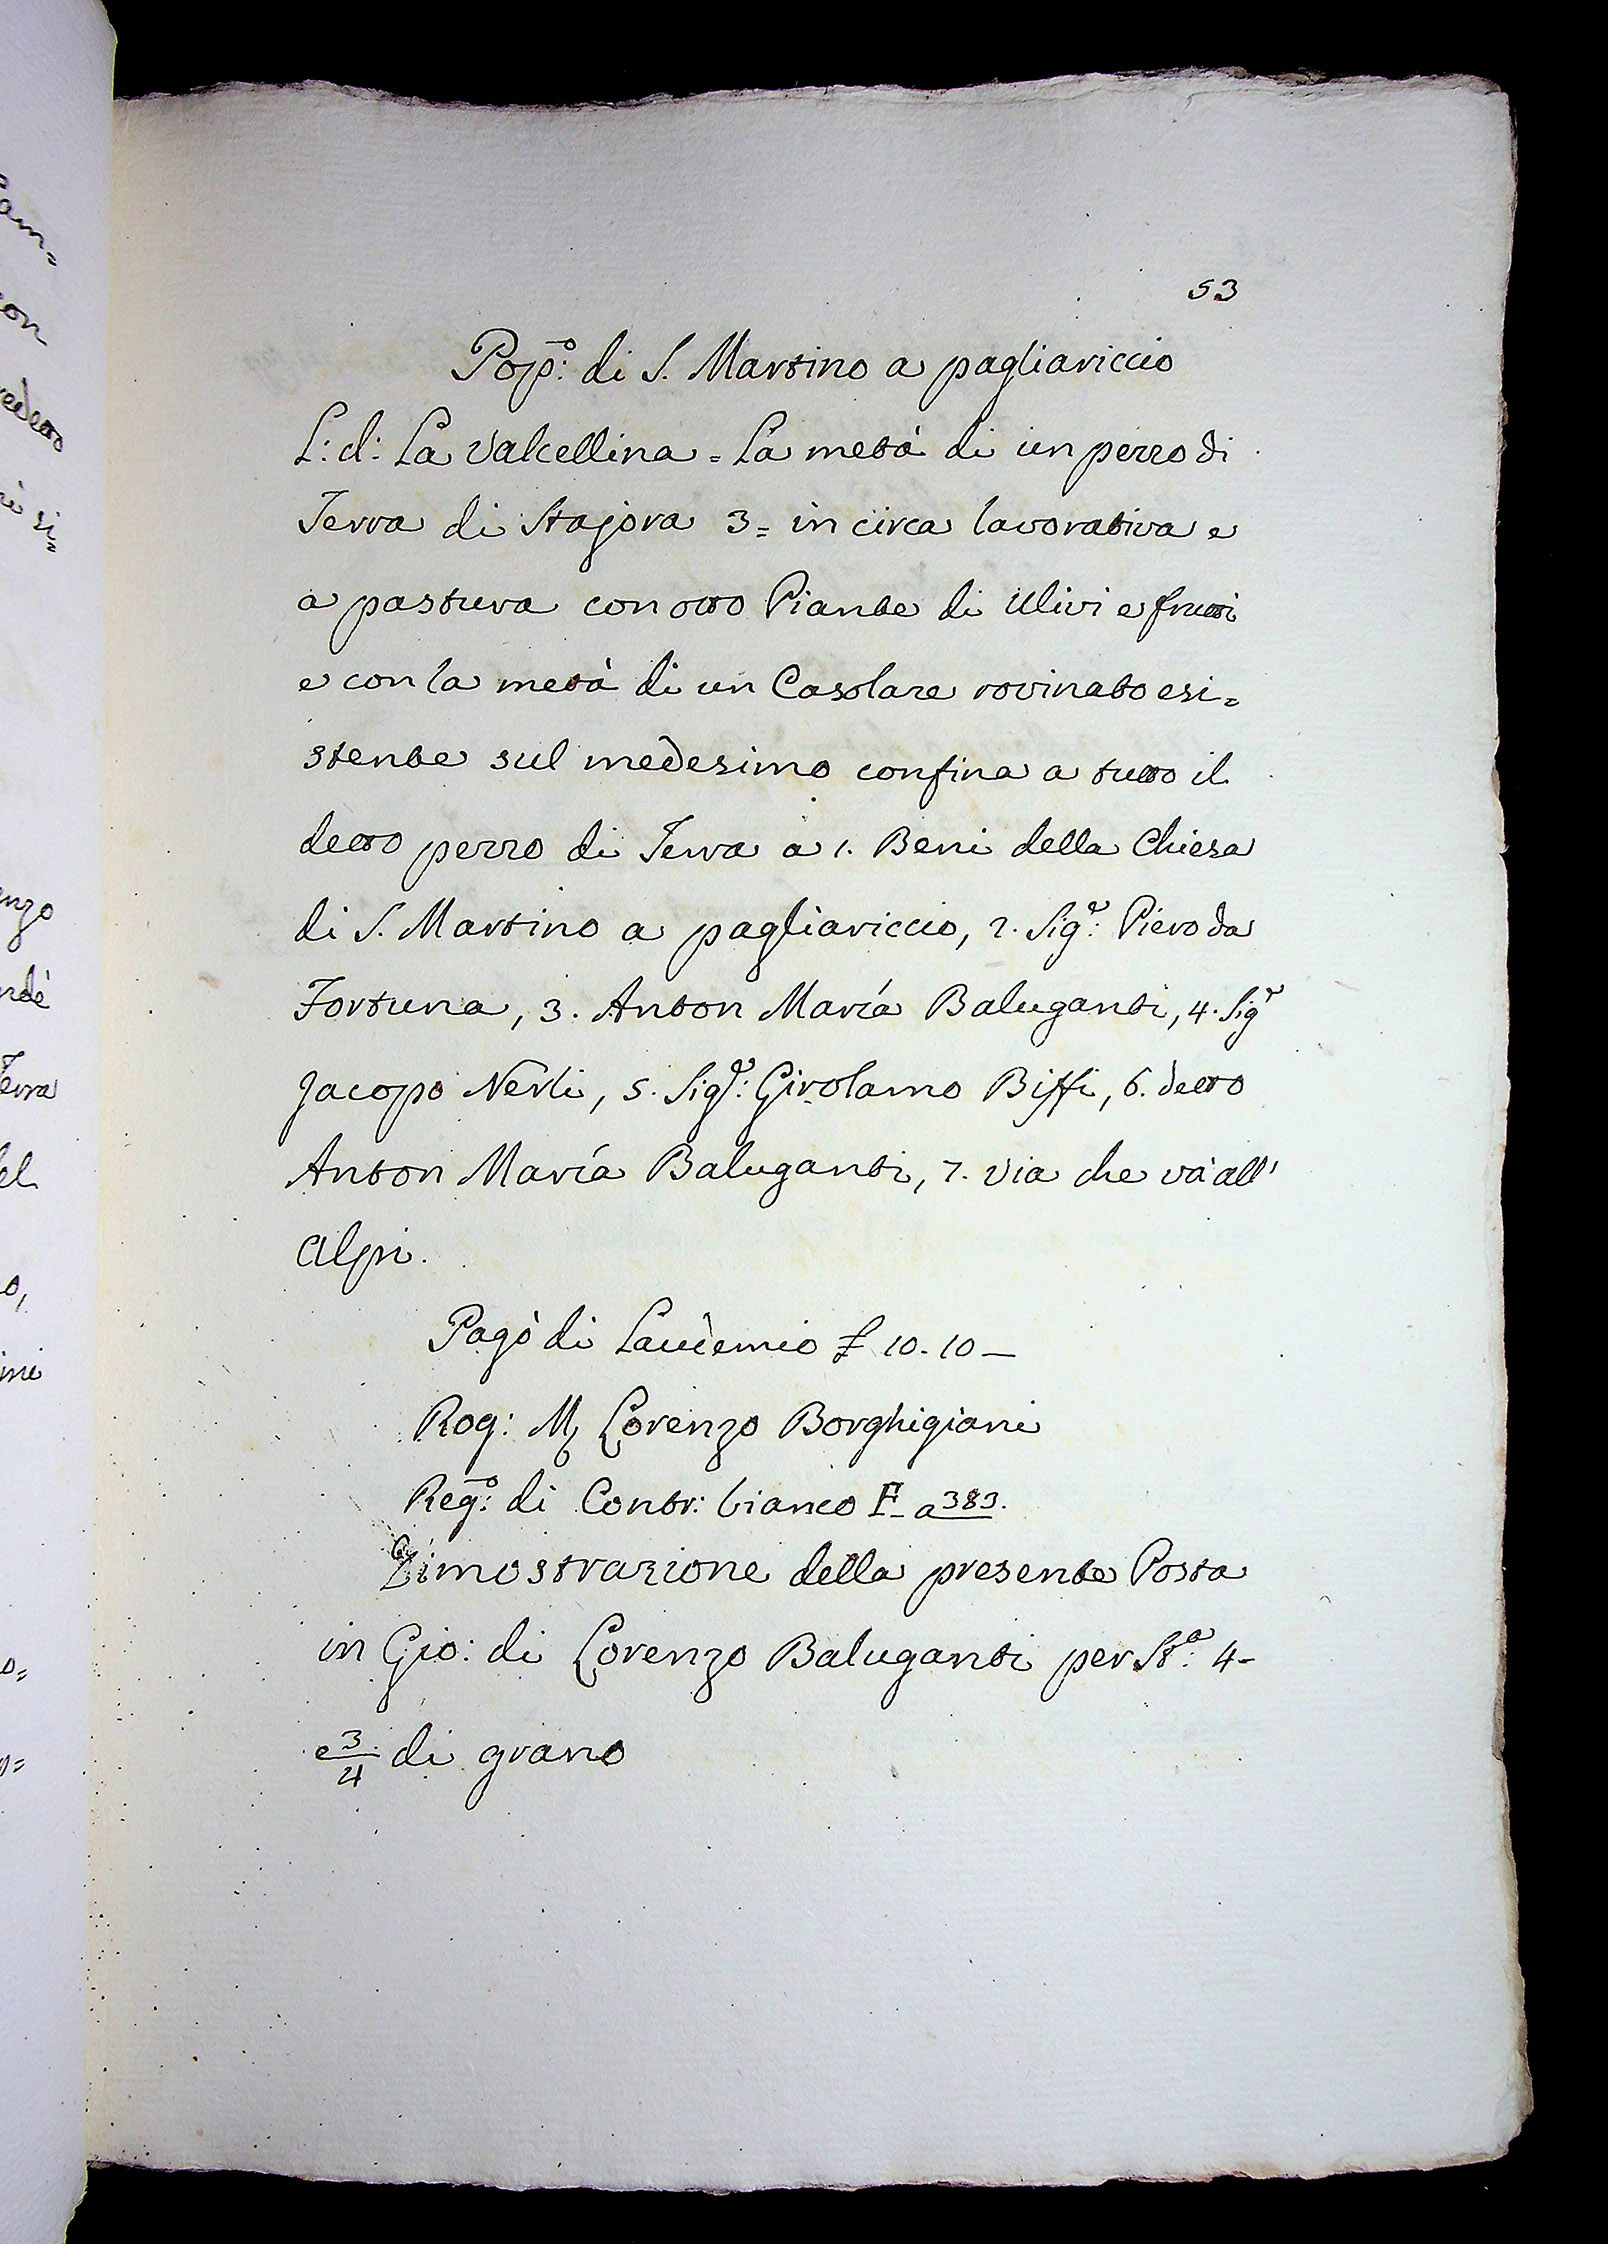 53
Pop.º: di S. Martino a pagliariccio
L: d: La Valcellina = La metà di un pezzo di
Terra di Stajora 3 = in circa lavorativa e
a pastura con otto Piante di Ulivi e frutti
e con la metà di un Casolare rovinato esi=
stente sul medesimo confina a tutto il
detto pezzo di Terra a 1. Beni della Chiesa
di S. Martino a pagliariccio, 2. Sig.e: Piero da
Fortuna, 3. Anton María Baluganti, 4. Sig.e
Jacopo Nerli, 5. Sig.e: Girolamo Biffi, 6. detto
Anton María Baluganti, 7. Via che và all'
Alpi.
Pagò di Laudemio £ 10. 10 —
Rog: M Lorenzo Borghigiani
Reg.º: di Contr: bianco F – a 383.
Dimostrazione della presente Posta
in Gio: di Lorenzo Baluganti per St.a: 4 –
e 3/4 di grano